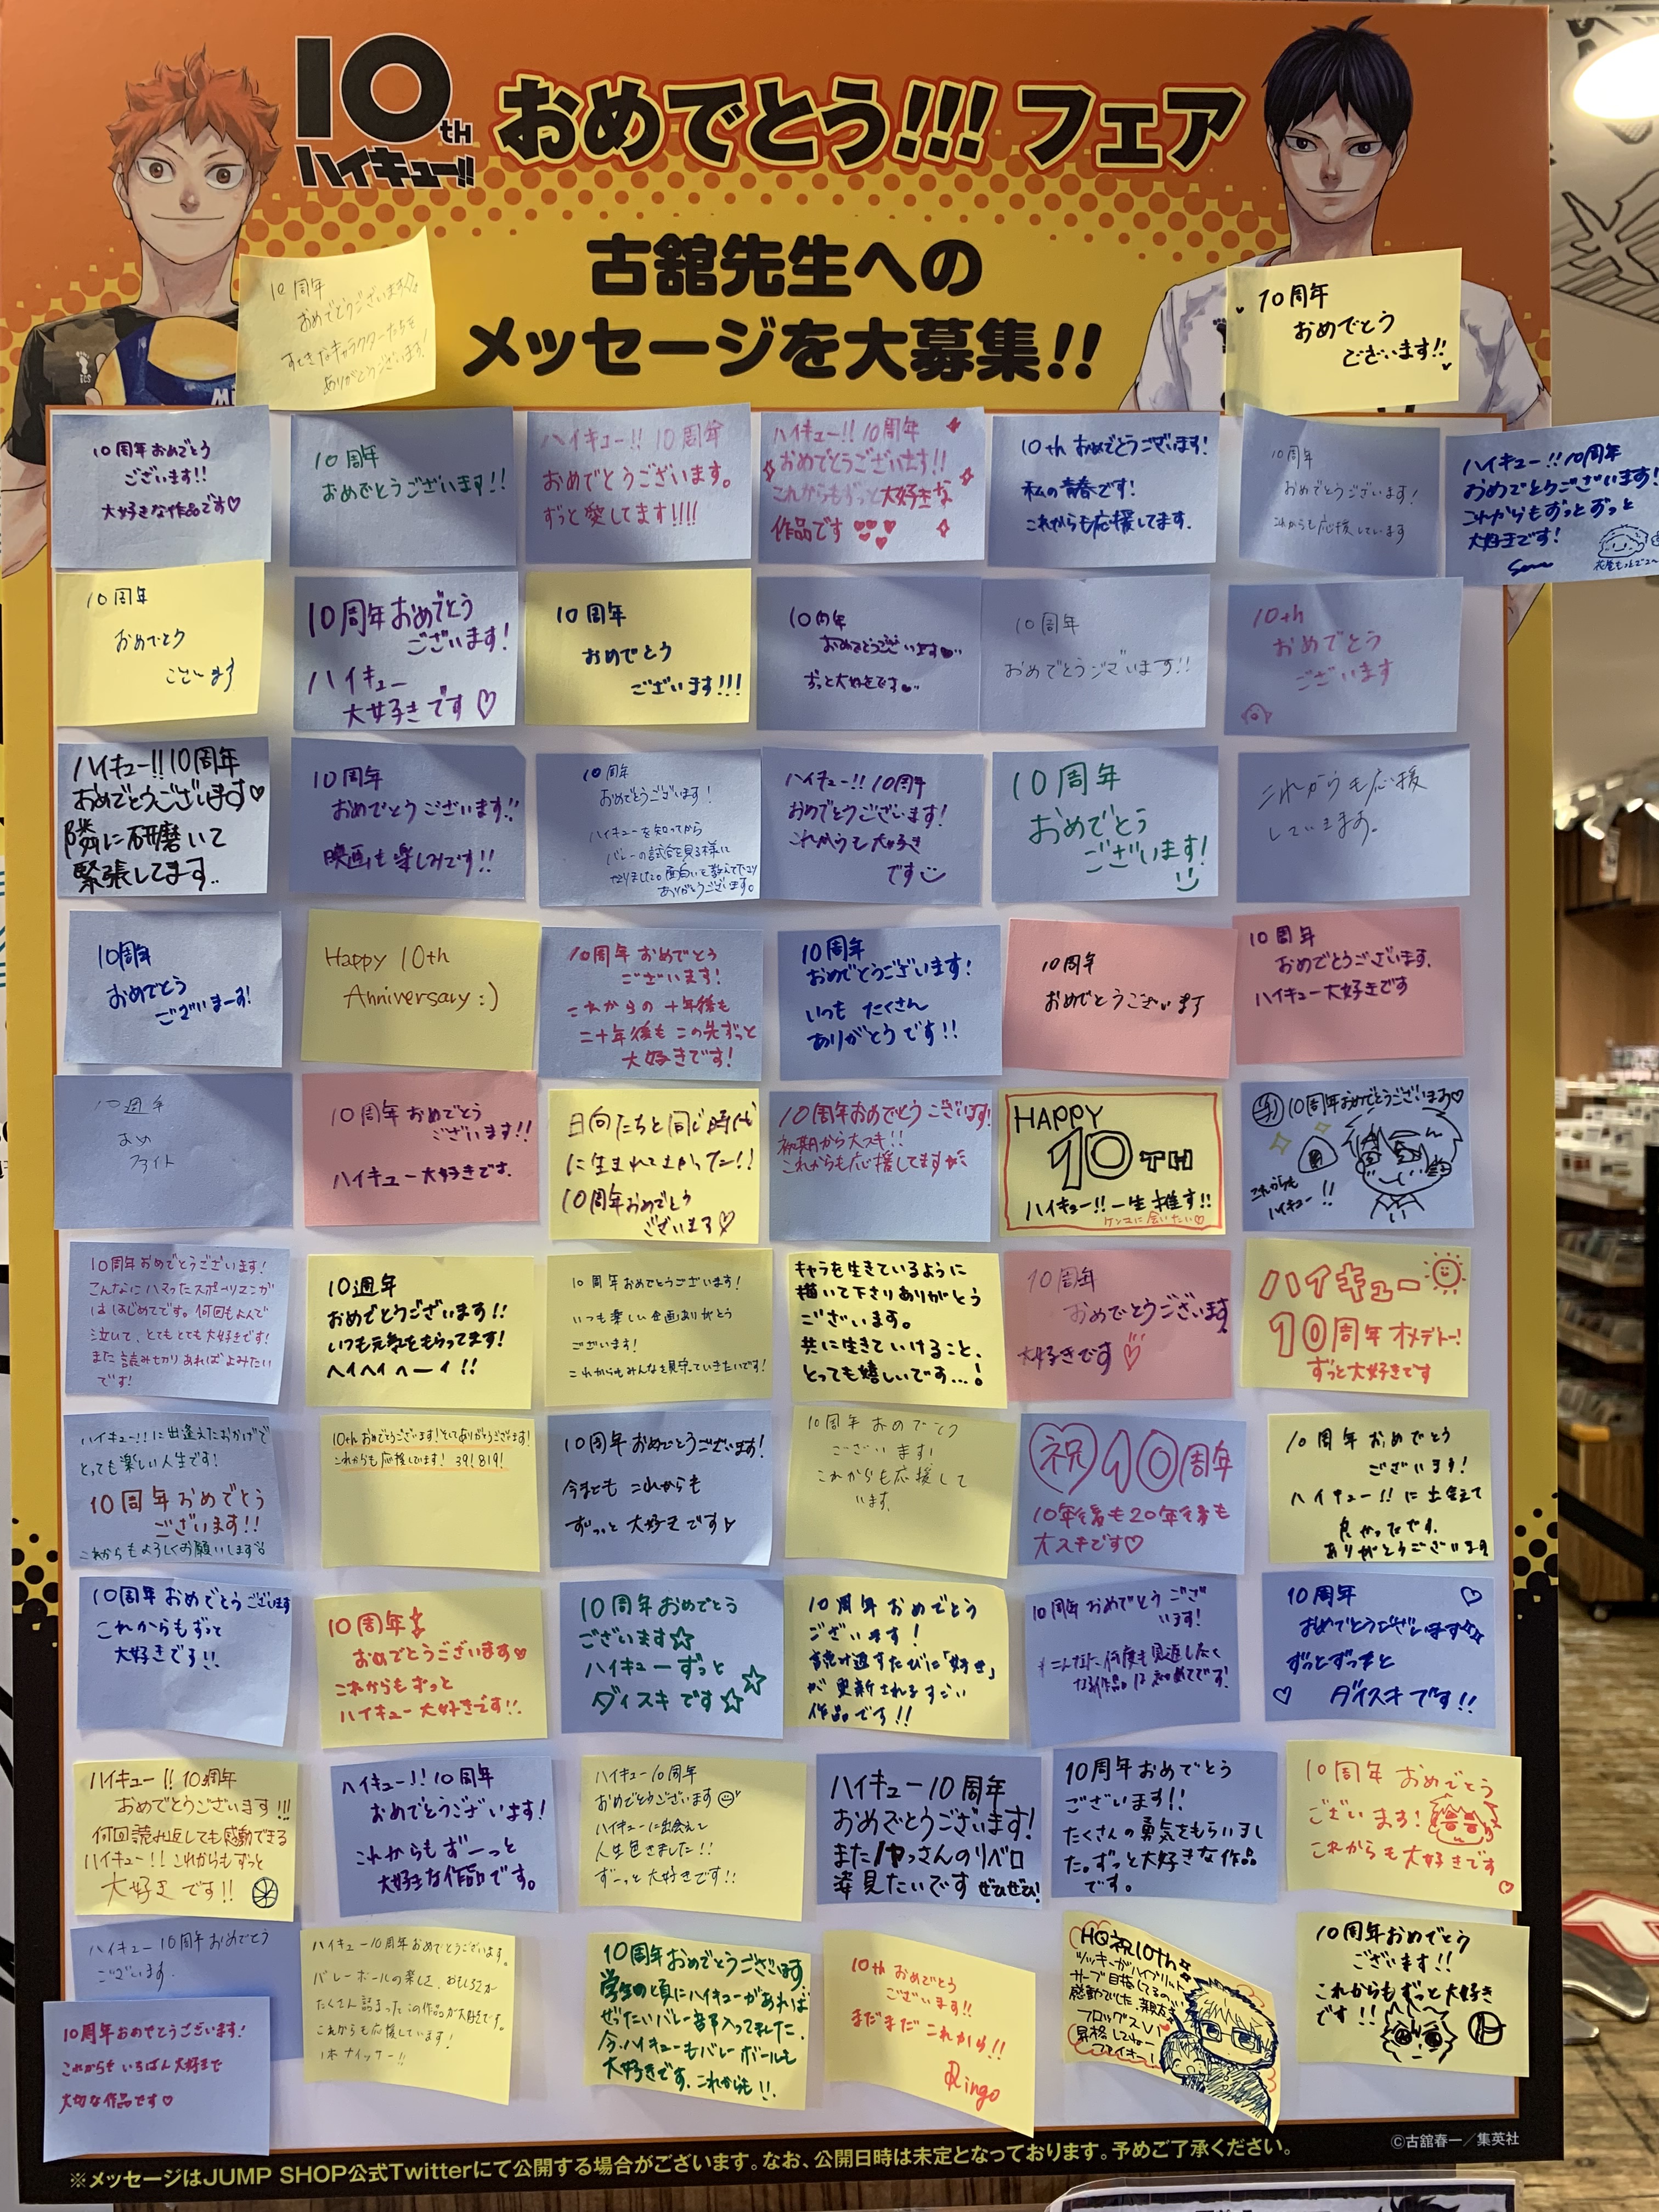 10th
ハイキュー!!
おめでとう!!!フェア
古舘先生への
メッセージを大募集!!
10周年
おめでとうございます
すてきなキャラクターたちを
ありがとうございます!
10周年
おめでとう
ございます!!
10周年おめでとう
ございます!!
大好きな作品です♡
10周年
おめでとうございます!!
ハイキュー!! 10周年
おめでとうございます。
ずっと愛してます!!!!
ハイキュー!! 10周年
おめでとうございます!!
これからもずっと大好きな
作品です
10th おめでとうございます!
私の青春です!
これからも応援してます.
10周年
おめでとうございます!
これからも応援しています
ハイキュー!! 10周年
おめでとうございます!
これからもずっとずっと
大好きです!
10周年
おめでとう
ございます
10周年おめでとう
ございます!
ハイキュー
大好きです♡
10周年
おめでとう
ございます!!!
10周年
おめでとうございます
ずっと大好きです
10周年
おめでとうございます!!
10th
おめでとう
ございます
ハイキュー!!10周年
おめでとうございます♡
隣に研磨いて
緊張してます..
10周年
おめでとうございます!!
映画も楽しみです!!
10周年
おめでとうございます!
ハイキューを知ってから
バレーの試合を見る様に
なりました。面白いを教えて下さり
ありがとうございます。
ハイキュー!! 10周年
おめでとうございます!
これからも大好き
です
10周年
おめでとう
ございます!
これからも応援
しています。
10周年
おめでとう
ございまーす!
Happy 10th
Anniversary :)
10周年 おめでとう
ございます!
これからの十年後も
二十年後もこの先ずっと
大好きです!
10周年
おめでとうございます!
いつも たくさん
ありがとうです!!
10周年
おめでとうございます
10周年
おめでとうございます.
ハイキュー大好きです
10週年
おめ
ファイト
10周年おめでとう
ございます!!
ハイキュー大好きです.
日向たちと同じ時代
に生まれてよかったー!!
10周年おめでとう
ございます♡
10周年おめでとうございます!
初期から大スキ!!
これからも応援してます
HAPPY
10TH
ハイキュー!! 一生推す!!
ケンマに会いたい♡
10周年おめでとうございます♡
これからも
ハイキュー!!
10周年おめでとうございます!
こんなにハマったスポーツマンガ
ははじめてです。何回もよんで
泣いて、とてもとても大好きです!
また読み切りあればよみたい
です!
10週年
おめでとうございます!!
いつも元気をもらってます!
ヘイヘイヘーイ!!
10周年おめでとうございます!
いつも楽しい企画ありがとう
ございます!
これからもみんなを見守っていきたいです!
キャラを生きているように
描いて下さりありがとう
ございます。
共に生きていけること、
とっても嬉しいです...!
10周年
おめでとうございます
大好きです♡
ハイキュー
10周年オメデトー!
ずっと大好きです
ハイキュー!!に出逢えたおかげで
とっても楽しい人生です!
10周年おめでとう
ございます!!
これからもよろしくお願いします
10thおめでとうございます!そしてありがとうございます!
これからも応援しています! 39!819!
10周年おめでとうございます!
今までも これからも
ずっっと 大好きです
10周年 おめでとう
ございます!
これからも応援して
います.
祝10周年
10年後も20年後も
大スキです♡
10周年おめでとう
ございます!
ハイキュー!!に出会えて
良かったです.
ありがとうございます
10周年おめでとうございます
これからもずっと
大好きです!!
10周年
おめでとうございます♡
これからもずっと
ハイキュー大好きです!!
10周年おめでとう
ございます☆
ハイキューずっと
ダイスキです☆
10周年おめでとう
ございます!
読み返すたびに「好き」
が更新されるすごい
作品です!!
10周年おめでとうござ
います!
こんなに何度も見返したく
なる作品は初めてです!
10周年
おめでとうございます
ずっとずっと
♡ ダイスキです!!
ハイキュー!! 10周年
おめでとうございます!!!
何回読み返しても感動できる
ハイキュー!! これからもずっと
大好きです!!
ハイキュー!! 10周年
おめでとうございます!
これからもずーっと
大好きな作品です。
ハイキュー10周年
おめでとうございます
ハイキューに出会えて
人生色きました!!
ずーっと大好きです!!
ハイキュー10周年
おめでとうございます!
またノヤっさんのリベロ
姿見たいです ぜひぜひ!
10周年おめでとう
ございます!!
たくさんの勇気をもらいまし
た。ずっと大好きな作品
です。
10周年 おめでとう
ございます!
これからも大好きです
♡
ハイキュー10周年おめでとう
ございます.
10周年おめでとうございます!
これからも いちばん大好きで
大切な作品です♡
ハイキュー10周年おめでとうございます.
バレーボールの楽しさ、おもしろさが
たくさん詰まったこの作品が大好きです.
これからも応援しています!
10周年おめでとうございます.
学生の頃にハイキューがあれば
ぜったいバレー部入ってました.
今.ハイキューもバレーボールも
大好きです.これからも!!
10th おめでとう
ございます!!
まだまだこれから!!
Ringo
HQ祝10th
ツッキーがハイブリット
サーブ目指してるの...
感動でした.
フロッグスV1
昇格してねー
ファイキー!
10周年おめでとう
ございます!!
これからもずっと大好き
です!!
©古舘春一/集英社
※メッセージはJUMP SHOP公式Twitterにて公開する場合がございます。なお、公開日時は未定となっております。予めご了承ください。